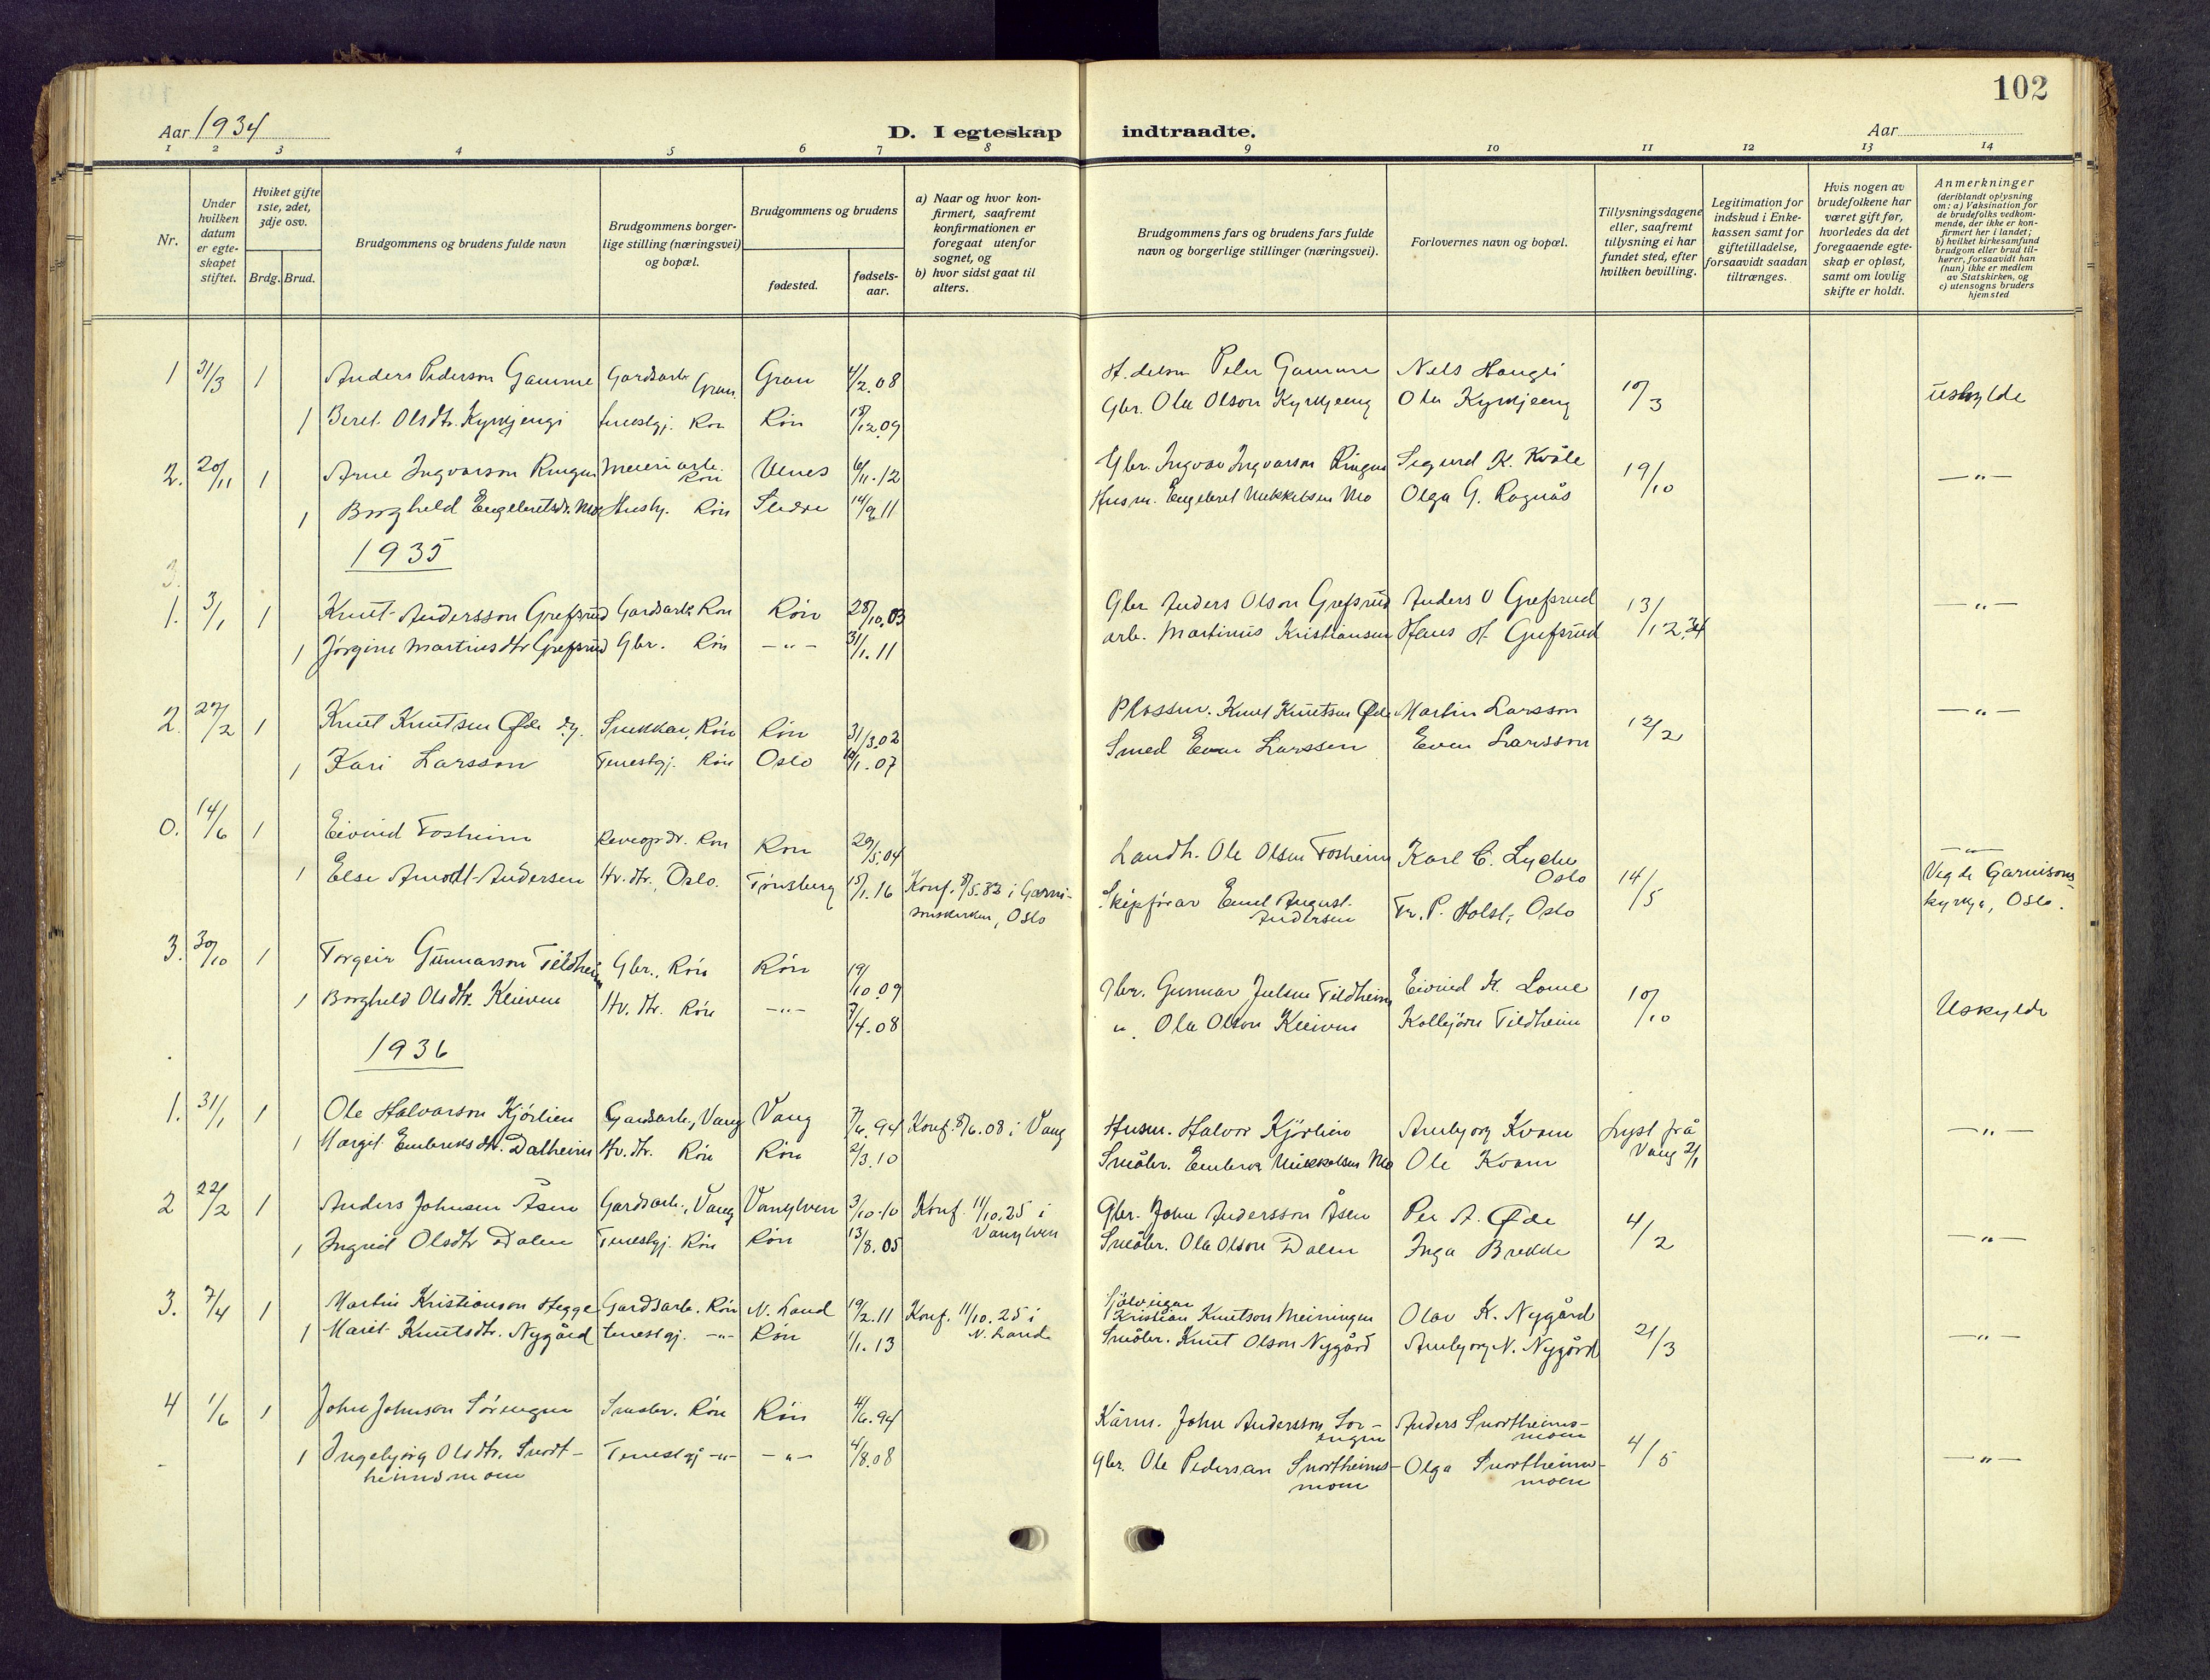 102
Aar 1934
D. I egteskap indtraadte.
Aar
1 2 3 4 5 6 7 8 9 10 11 12 13 14
Nr.
Under hvilken datum er egteskapet stiftet.
Hviket gifte 1ste, 2det, 3dje osv.
Brdg. Brud.
Brudgommens og brudens fulde navn
Brudgommens borgerlige stilling (næringsvei) og bopæl.
Brudgommens og brudens
fødested.
fødselsaar.
a) Naar og hvor konfirmert, saafremt konfirmationen er foregaat utenfor sognet, og
b) hvor sidst gaat til alters.
Brudgommens fars og brudens fars fulde navn og borgerlige stillinger (næringsvei).
Forlovernes navn og bopæl.
Tillysningsdagene eller, saafremt tillysning ei har fundet sted, efter hvilken bevilling.
Legitimation for indskud i Enkekassen samt for giftetilladelse, forsaavidt saadan tiltrænges.
Hvis nogen av brudefolkene har været gift før, hvorledes da det foregaaende egteskap er opløst, samt om lovlig skifte er holdt.
Anmerkninger (deriblandt oplysning om: a) Vaksination for de brudefolks vedkommende, der ikke er konfirmert her i landet; b) hvilket kirkesamfund brudgom eller brud tilhører, forsaavidt han (hun) ikke er medlem av Statskirken, og c) utensogns bruders hjemsted
1 31/3 1 Anders Pederson Gamme Gardsarb. Gran Gran 4/2.08 Peder Gamme Nels Haugli 10/3 uskylde
1 Beret Olsdtr. Kyrkjengi tenestgj. Røn Røn 12.09 Gbr. Ola Olson Kyrkjeeng Ola Kyrkjeeng
2. 20/11 1 Arne Ingvarson Ringen Meieriarb. Røn Ulnes 6/11.12 Gbr. Ingvar Ingvarson Ringen Sigurd K. Kvåle 19/10 —"—
1 Borghild Engebretsdr. Mo Hushj. Røn Slidre 14/9 11 Husm. Engebret Mikkelsen Mo Olga G. Rognås
1935
3.
1. 3/1 1 Knut Andersson Grefsrud Gardsarb. Røn Røn 28/10.03 Gbr Anders Olson Grefsrud Anders O Grefsrud 13/12.34 —"—
1 Jørgine Martinsdtr Grefsrud Gbr. Røn —"— 31/1.11 arb. Martinus Kristiansen Hans H. Grefsrud
2. 27/2 1 Knut Knutsen Øde d.y. Snikkar, Røn Røn 31/3.02 Plassm. Knut Knutsen Øde Martin Larsson 12/2 —"—
1 Kari Larsson Tenestgj. Røn Oslo 1.07 Smed Even Larssen Even Larsson
0. 14/6 1 Eivind Fosheim Reveoppdr. Røn Røn 29/5.04 Landh. Ole Olsen Fosheim Karl C. Lyche Oslo 14/5 —"—
1 Else Arnodt-Andersen Hv. dtr., Oslo. Tønsberg 15/1.16 Konf. 8/5.32 i Garnisonskirken, Oslo Skipsførar Emil August Andersen Fr. P. Holst, Oslo Vigde Garnisonskyrkja, Oslo.
3. 30/10 1 Torgeir Gunnarson Tildheim Gbr., Røn Røn 19/10.09 Gbr. Gunnar Julsen Tildheim Eivind H. Lome 10/10 Uskylde
1 Borghild Olsdtr. Kleiven Hv. dtr. Røn —"— 7/4.08 ". Ola Olson Kleiven Kolbjørn Tildheim
1936
1. 31/1 1 Ole Halvorson Kjørlien Gardsarb., Vang Vang 7/6.94 Konf. 8/6.08 i Vang Husm. Halvor Kjørlien Ambjørg Kvam Lyst frå Vang 2/1 —"—
1 Margit Embreksdtr. Dalheim Hv. dtr. Røn Røn 2/3.10 Småbr. Embrek Mikkelsen Mo Ole Kvam
2 22/2 1 Anders Johnsen Åsen Gardsarb., Vang Vanylven 3/10.10 Konf. 11/10.25 i Vanylven Gbr. John Andersson Åsen Per A. Øde 4/2 —"—
1 Ingrid Olsdtr Dalen Tenestgj. Røn Røn 13/8.05 Småbr. Ola Olson Dalen Inga Brekke
3. 7/4 1 Martin Kristianson Hegge Gardsarb. Røn N. Land 19/2.11 Konf. 11/10.25 i N. Land Sjølveigar Kristian Knutson Meiningen Olav K. Nygård 21/3 —"—
1 Marit Knutsdtr. Nygård tenestgj. —"— Røn 1/1.13 Småbr. Knut Olson Nygård Ambjørg N. Nygård
4 1/6 1 John Johnson Sørengen Småbr. Røn Røn 4/6.94 Kårm. John Andersson Sørengen Anders Snortheimsmoen 4/5 —"—
1 Ingebjørg Olsdtr. Snortheimsmoen Tenestgj —"— —"— 4/8.08 Gbr. Ole Pedersen Snortheimsmoen Olga Snortheimsmoen